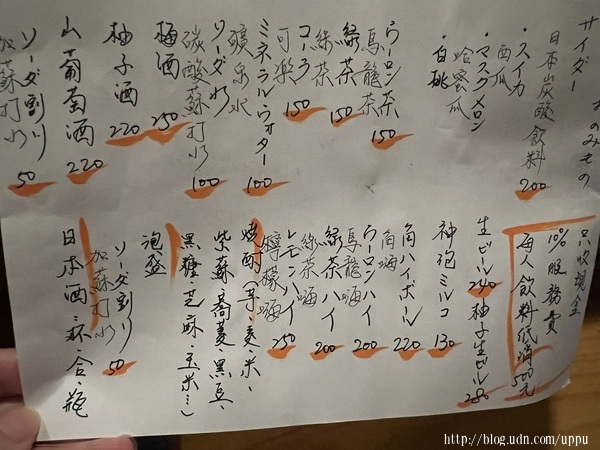 のみもの
サイダー
日本炭酸飲料 200
・スイカ
西瓜
・マスクメロン
哈蜜瓜
・白桃
ウーロン茶
烏龍茶 150
緑茶
綠茶 150
コーラ
可樂 150
ミネラルウォーター
礦泉水 100
ソーダ水
碳酸蘇打水 100
梅酒 250
柚子酒 220
山葡萄酒 220
ソーダ割り
加蘇打水 50
只收現金
10%服務費
每人飲料低消500元
生ビール 240
柚子生ビール 280
神砲ミルコ 130
角ハイボール
角嗨 220
ウーロンハイ
烏龍嗨 200
緑茶ハイ
綠茶嗨 200
レモンハイ
檸檬嗨 250
焼酎(芋、麦、米、
紫蘇、蕎菱、黒豆、
黑糖、芝麻、玉米…)
泡盛
ソーダ割り
加蘇打水 50
日本酒・杯・合・瓶
http://blog.udn.com/uppu